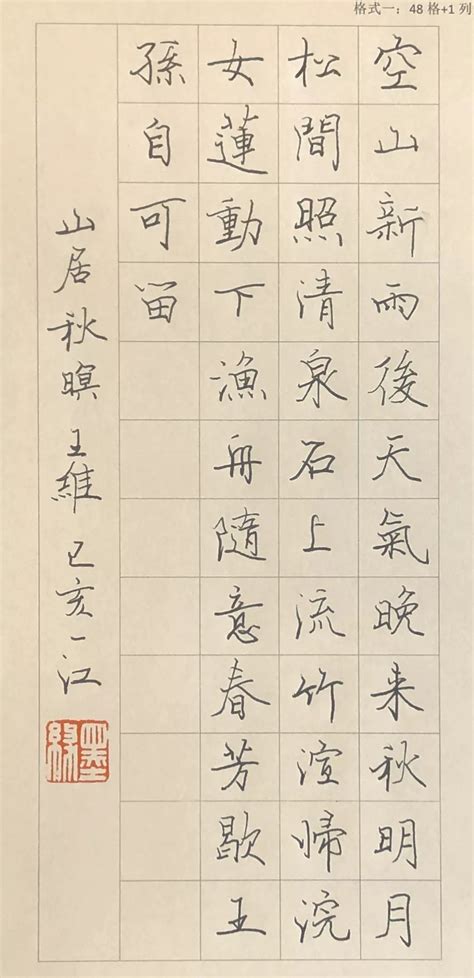 格式一：48格+1列
空山新雨後天氣晚来秋明月
松間照清泉石上流竹渲歸浣
女蓮動下漁舟隨意春芳歇王
孫自可留
山居秋暝王維己亥一江
墨緣